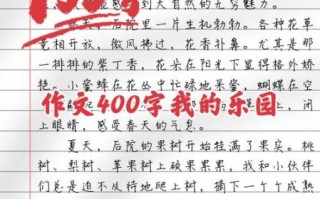 感到大自然的无穷魅力。
后院里一片生机勃勃。各种花草
竞相开放，微风拂过，花香扑鼻。尤其是那
一排排的紫丁香，花朵在阳光下显得格外娇
艳。小蜜蜂在花丛中忙碌地采蜜，蝴蝶在空
作文400字我的乐园
上眼睛，感受春天的气息。
夏天，后院的果树开始挂满了果实。桃
树、梨树、苹果树上硕果累累，我和小伙伴
们总是迫不及待地爬上树，摘下一个个成熟